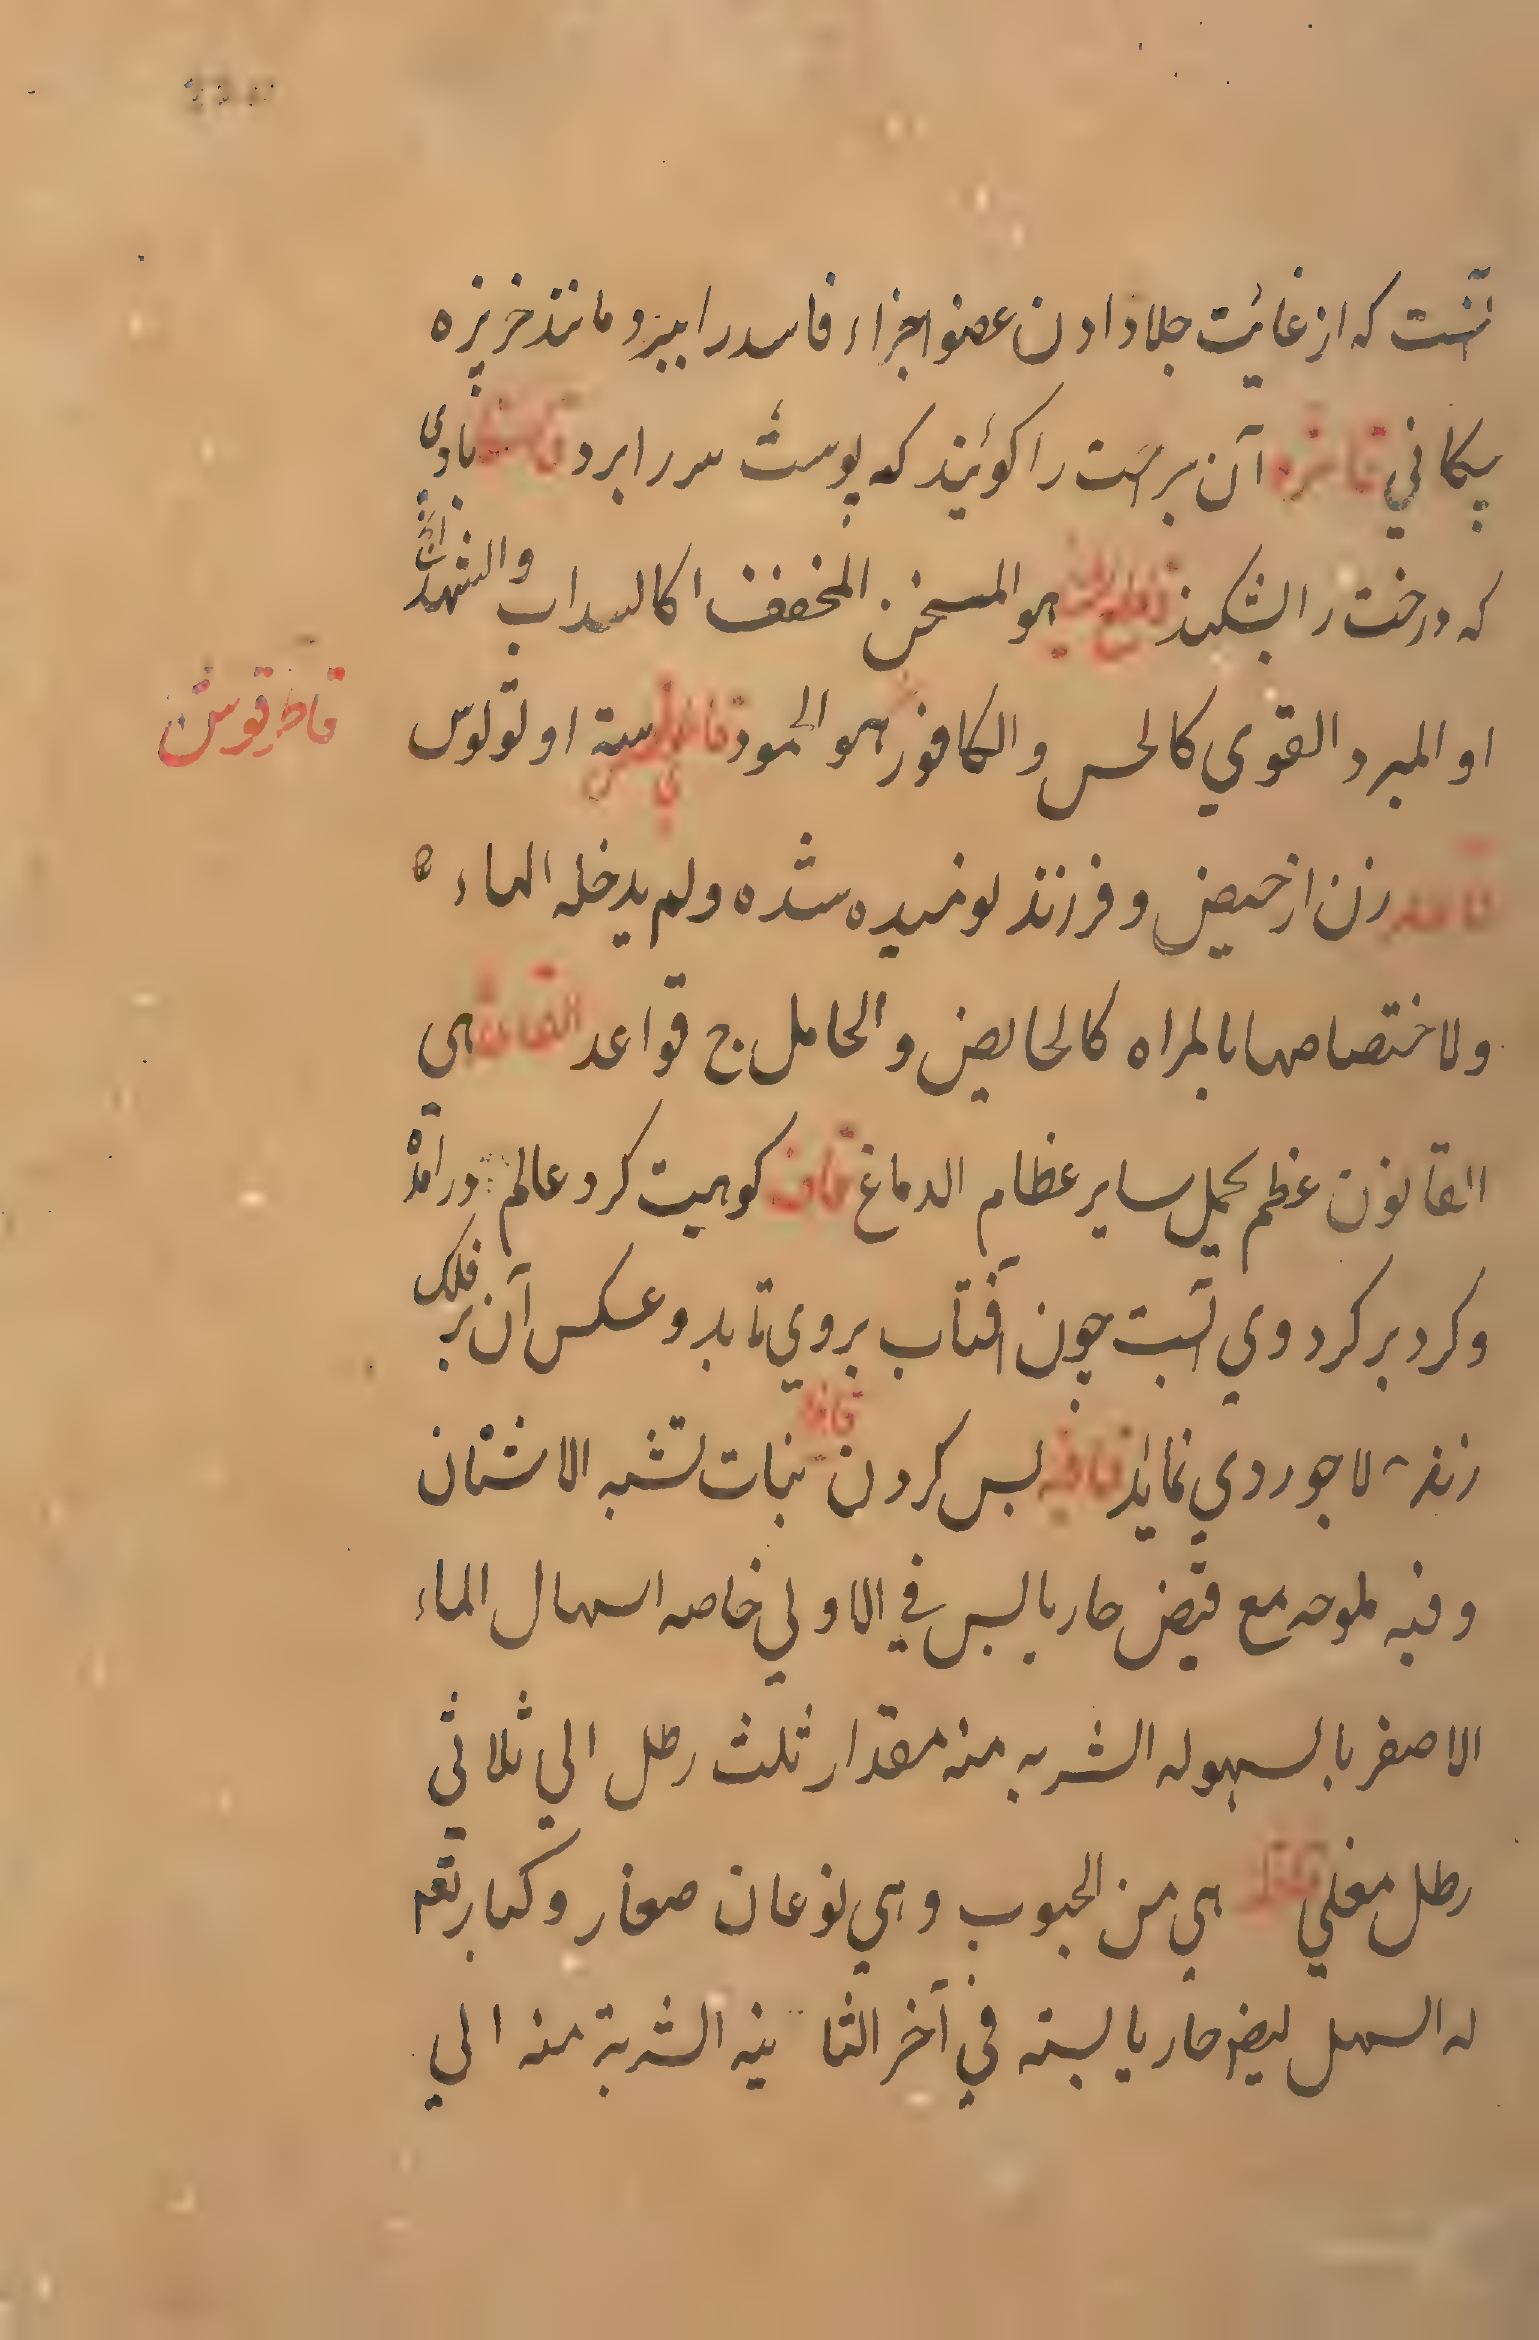 آنست که از غائیت جلا دادن عضو اجزاء فاسد را ببرد مانند خربزه
پیکانی قاشره آن برشت را کوئیند که پوست سر را برد بادی
که درخت را بشکند هو المسخن المخفف کالسداب والشهدانه
او المبرد القوي کالخس والکافور هو الجمود سته اوتولوس
قاطیقوس
قاعد زن از حیض و فرزند نومیده شده ولم یدخله الهاء
ولاختصاصها بالمراه کالحایض والحامل ج قواعد القاعده هی
القانون عظم یحمل سایر عظام الدماغ قاف کوهیت کرد عالم درآمده
وکرد بر کرد وي آبست چون آفتاب بروي تابد و عکس آن بر فلک
زند لاجوردي نماید قافیه پس کردن قاقلا نبات تشبه الاشنان
وفیه ملوحه مع قبض حار یابس في الاولي خاصه اسهال الماء
الاصفر بالسهوله الشربه منه مقدار ثلث رطل الي ثلاثي
رطل مغلي هي من الحبوب وهي نوعان صغار وکبار یقع
له السهل ایضا حار یابسته في آخر الثانیه الشربة منه الي